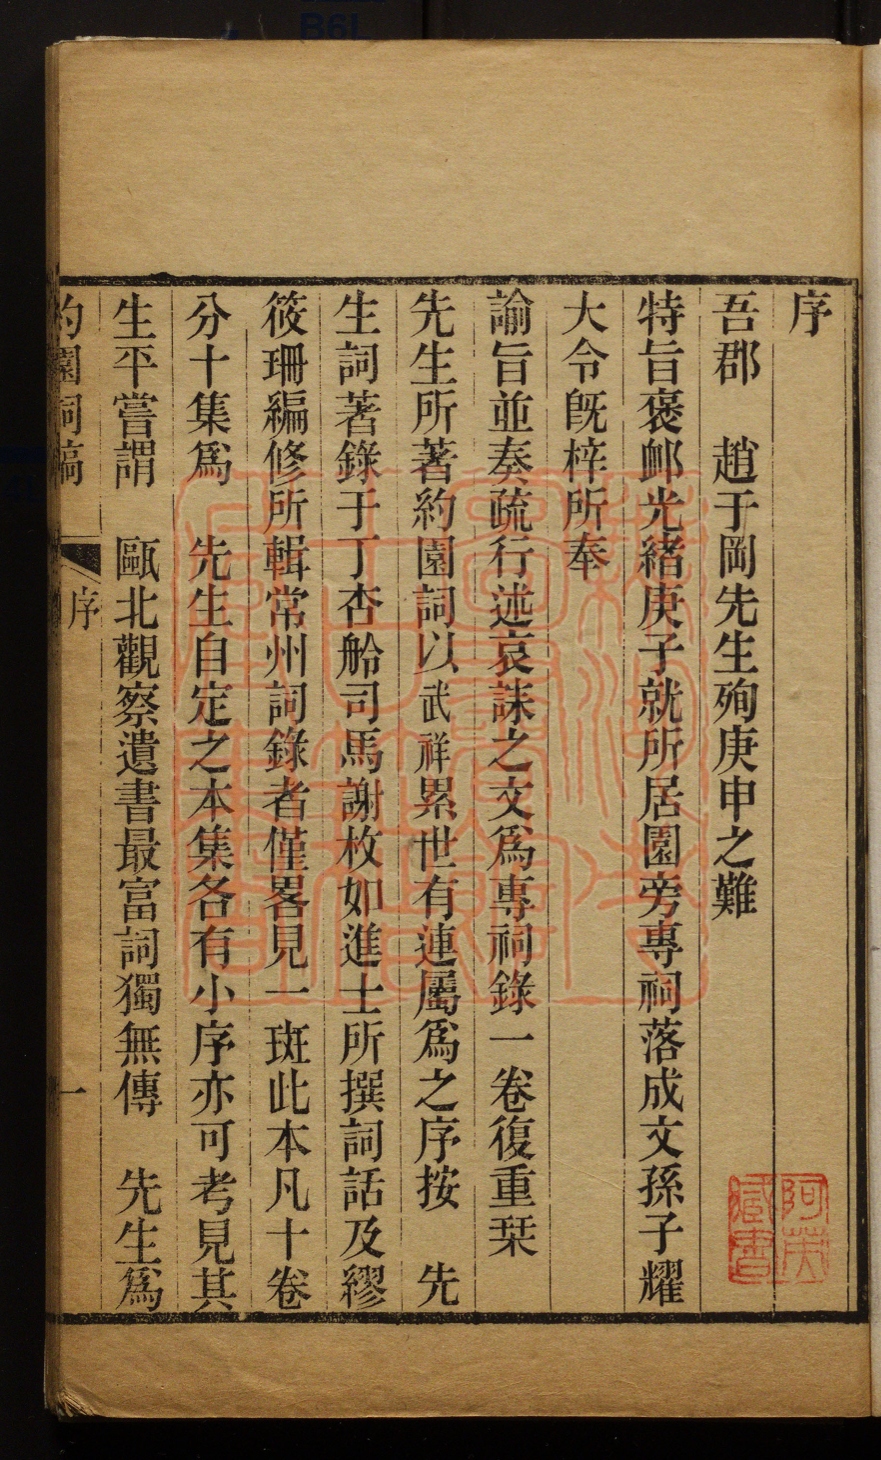 序
吾郡　趙于岡先生殉庚申之難
特旨褒卹光緒庚子就所居園旁專祠落成文孫子耀
大令旣梓所奉
諭旨並奏疏行述哀誄之文爲專祠錄一卷復重栞
先生所著約園詞以武祥累世有連屬爲之序按　先
生詞著錄于丁杏舲司馬謝枚如進士所撰詞話及繆
筱珊編修所輯常州詞錄者僅畧見一斑此本凡十卷
分十集爲　先生自定之本集各有小序亦可考見其
生平嘗謂　甌北觀察遺書最富詞獨無傳　先生爲
約園詞稿　序　一
阿英
藏書